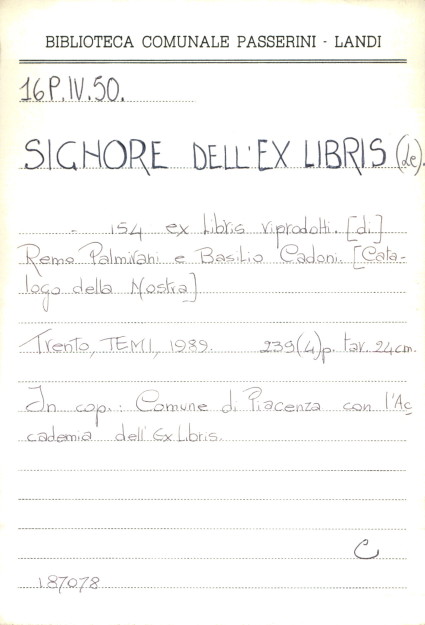 BIBLIOTECA COMUNALE PASSERINI - LANDI
16P.IV.50.
SIGNORE DELL'EX LIBRIS (Le).
- 154 ex libris riprodotti. [di]
Remo Palmirani e Basilio Cadoni. [Cata-
logo della Mostra]
Trento, TEMI, 1989. 239(4)p. tav. 24cm.
In cop.: Comune di Piacenza con l'Ac
cademia dell'Ex Libris.
C
187078